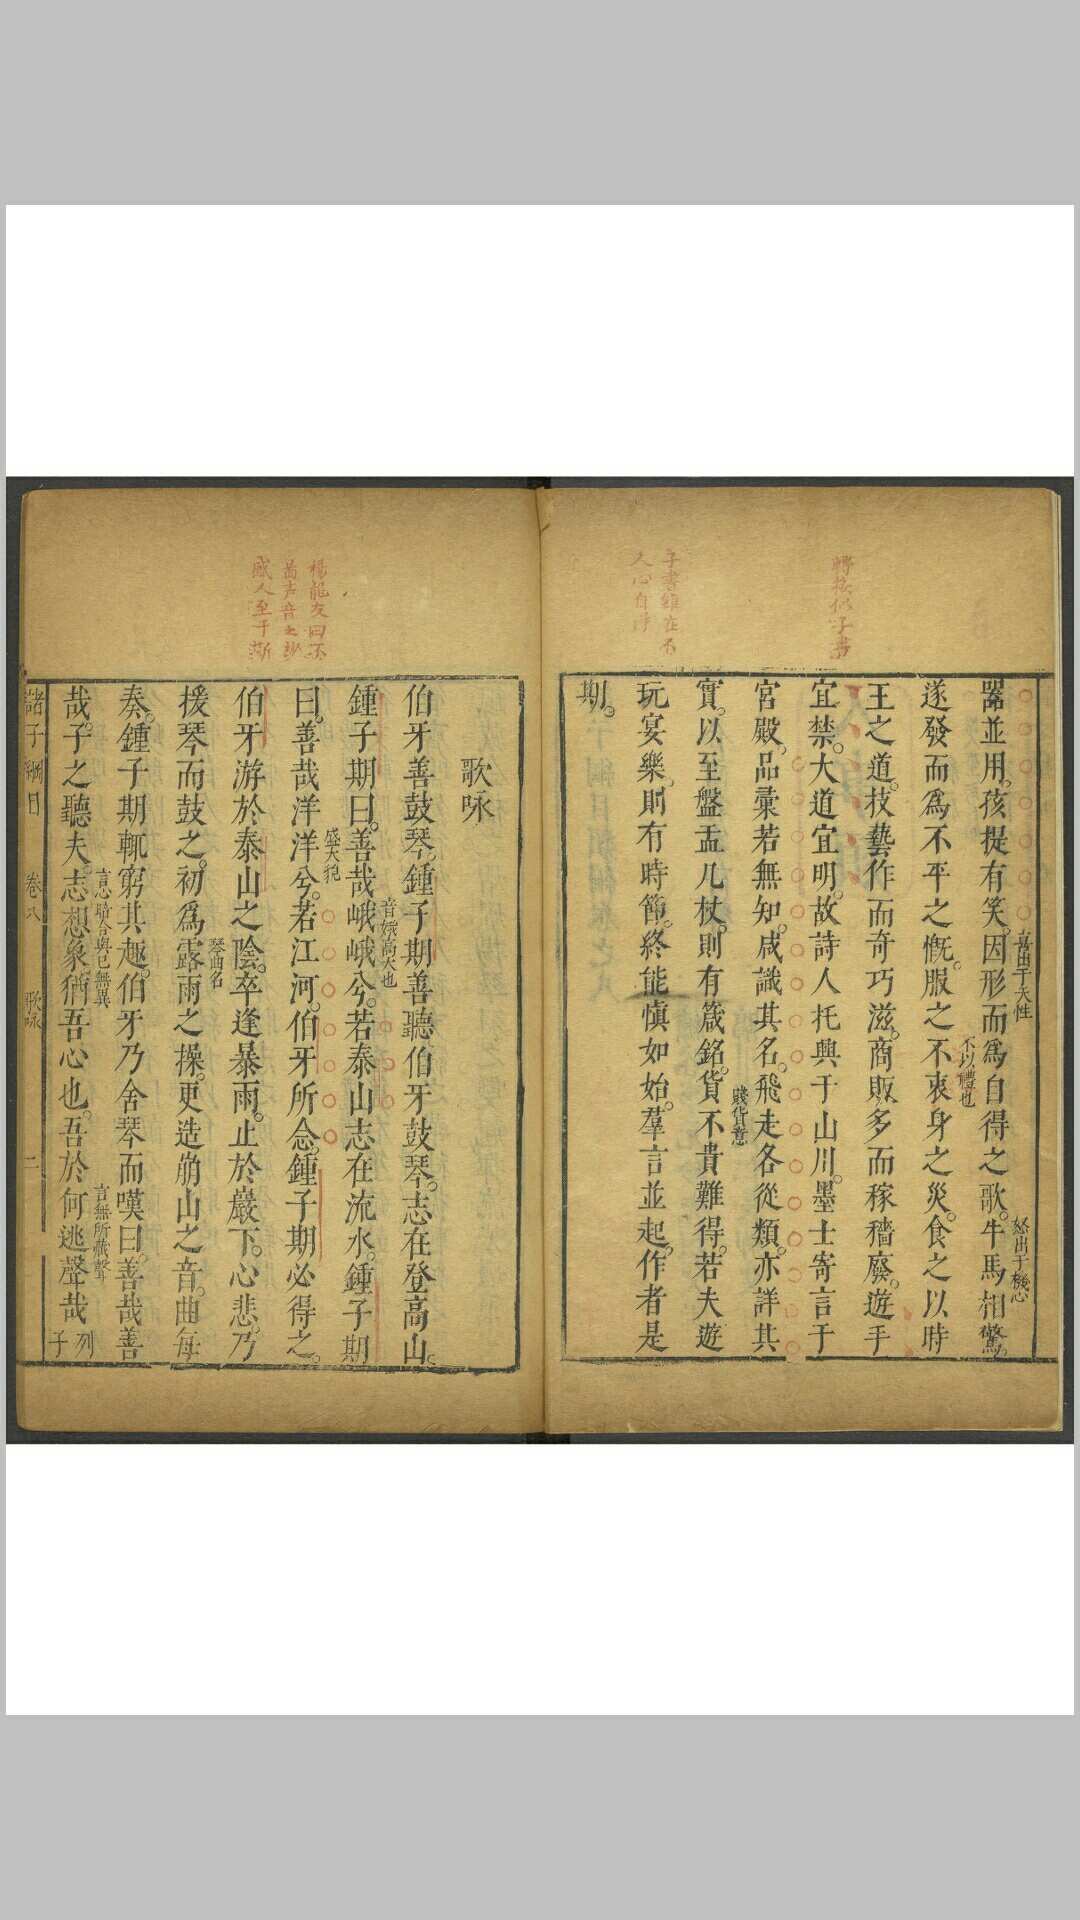 器並用。孩提有笑。因形而爲自得之歌。牛馬相驚。
喜出于天性
怒出于機心
遂發而爲不平之慨。服之不衷身之災。食之以時
不以禮也
王之道。技藝作而奇巧滋。商販多而稼穡廢。遊手
宜禁。大道宜明。故詩人托興于山川。墨士寄言于
宮殿。品彙若無知。咸識其名。飛走各從類。亦詳其
實。以至盤盂几杖。則有箴銘。貨不貴難得。若夫遊
賤貨意
玩宴樂。則有時節。終能慎如始。羣言並起。作者是
期。
子書雖在
人心自
歌咏
伯牙善鼓琴。鍾子期善聽伯牙鼓琴。志在登高山。
鍾子期曰。善哉峨峨兮。若泰山志在流水。鍾子期
音娥高大也
曰。善哉洋洋兮。若江河。伯牙所念。鍾子期必得之。
盛大貌
伯牙游於泰山之陰。卒逢暴雨。止於巖下。心悲。乃
援琴而鼓之。初爲霖雨之操。更造崩山之音。曲每
琴曲名
奏。鍾子期輒窮其趣。伯牙乃舍琴而嘆曰。善哉善
哉。子之聽夫。志想象猶吾心也。吾於何逃聲哉
言心暗合與己無異
言無所藏聲
列子
楊龍友曰不
啚声音之妙
感人至于斯
諸子綱目 卷八 歌咏 二